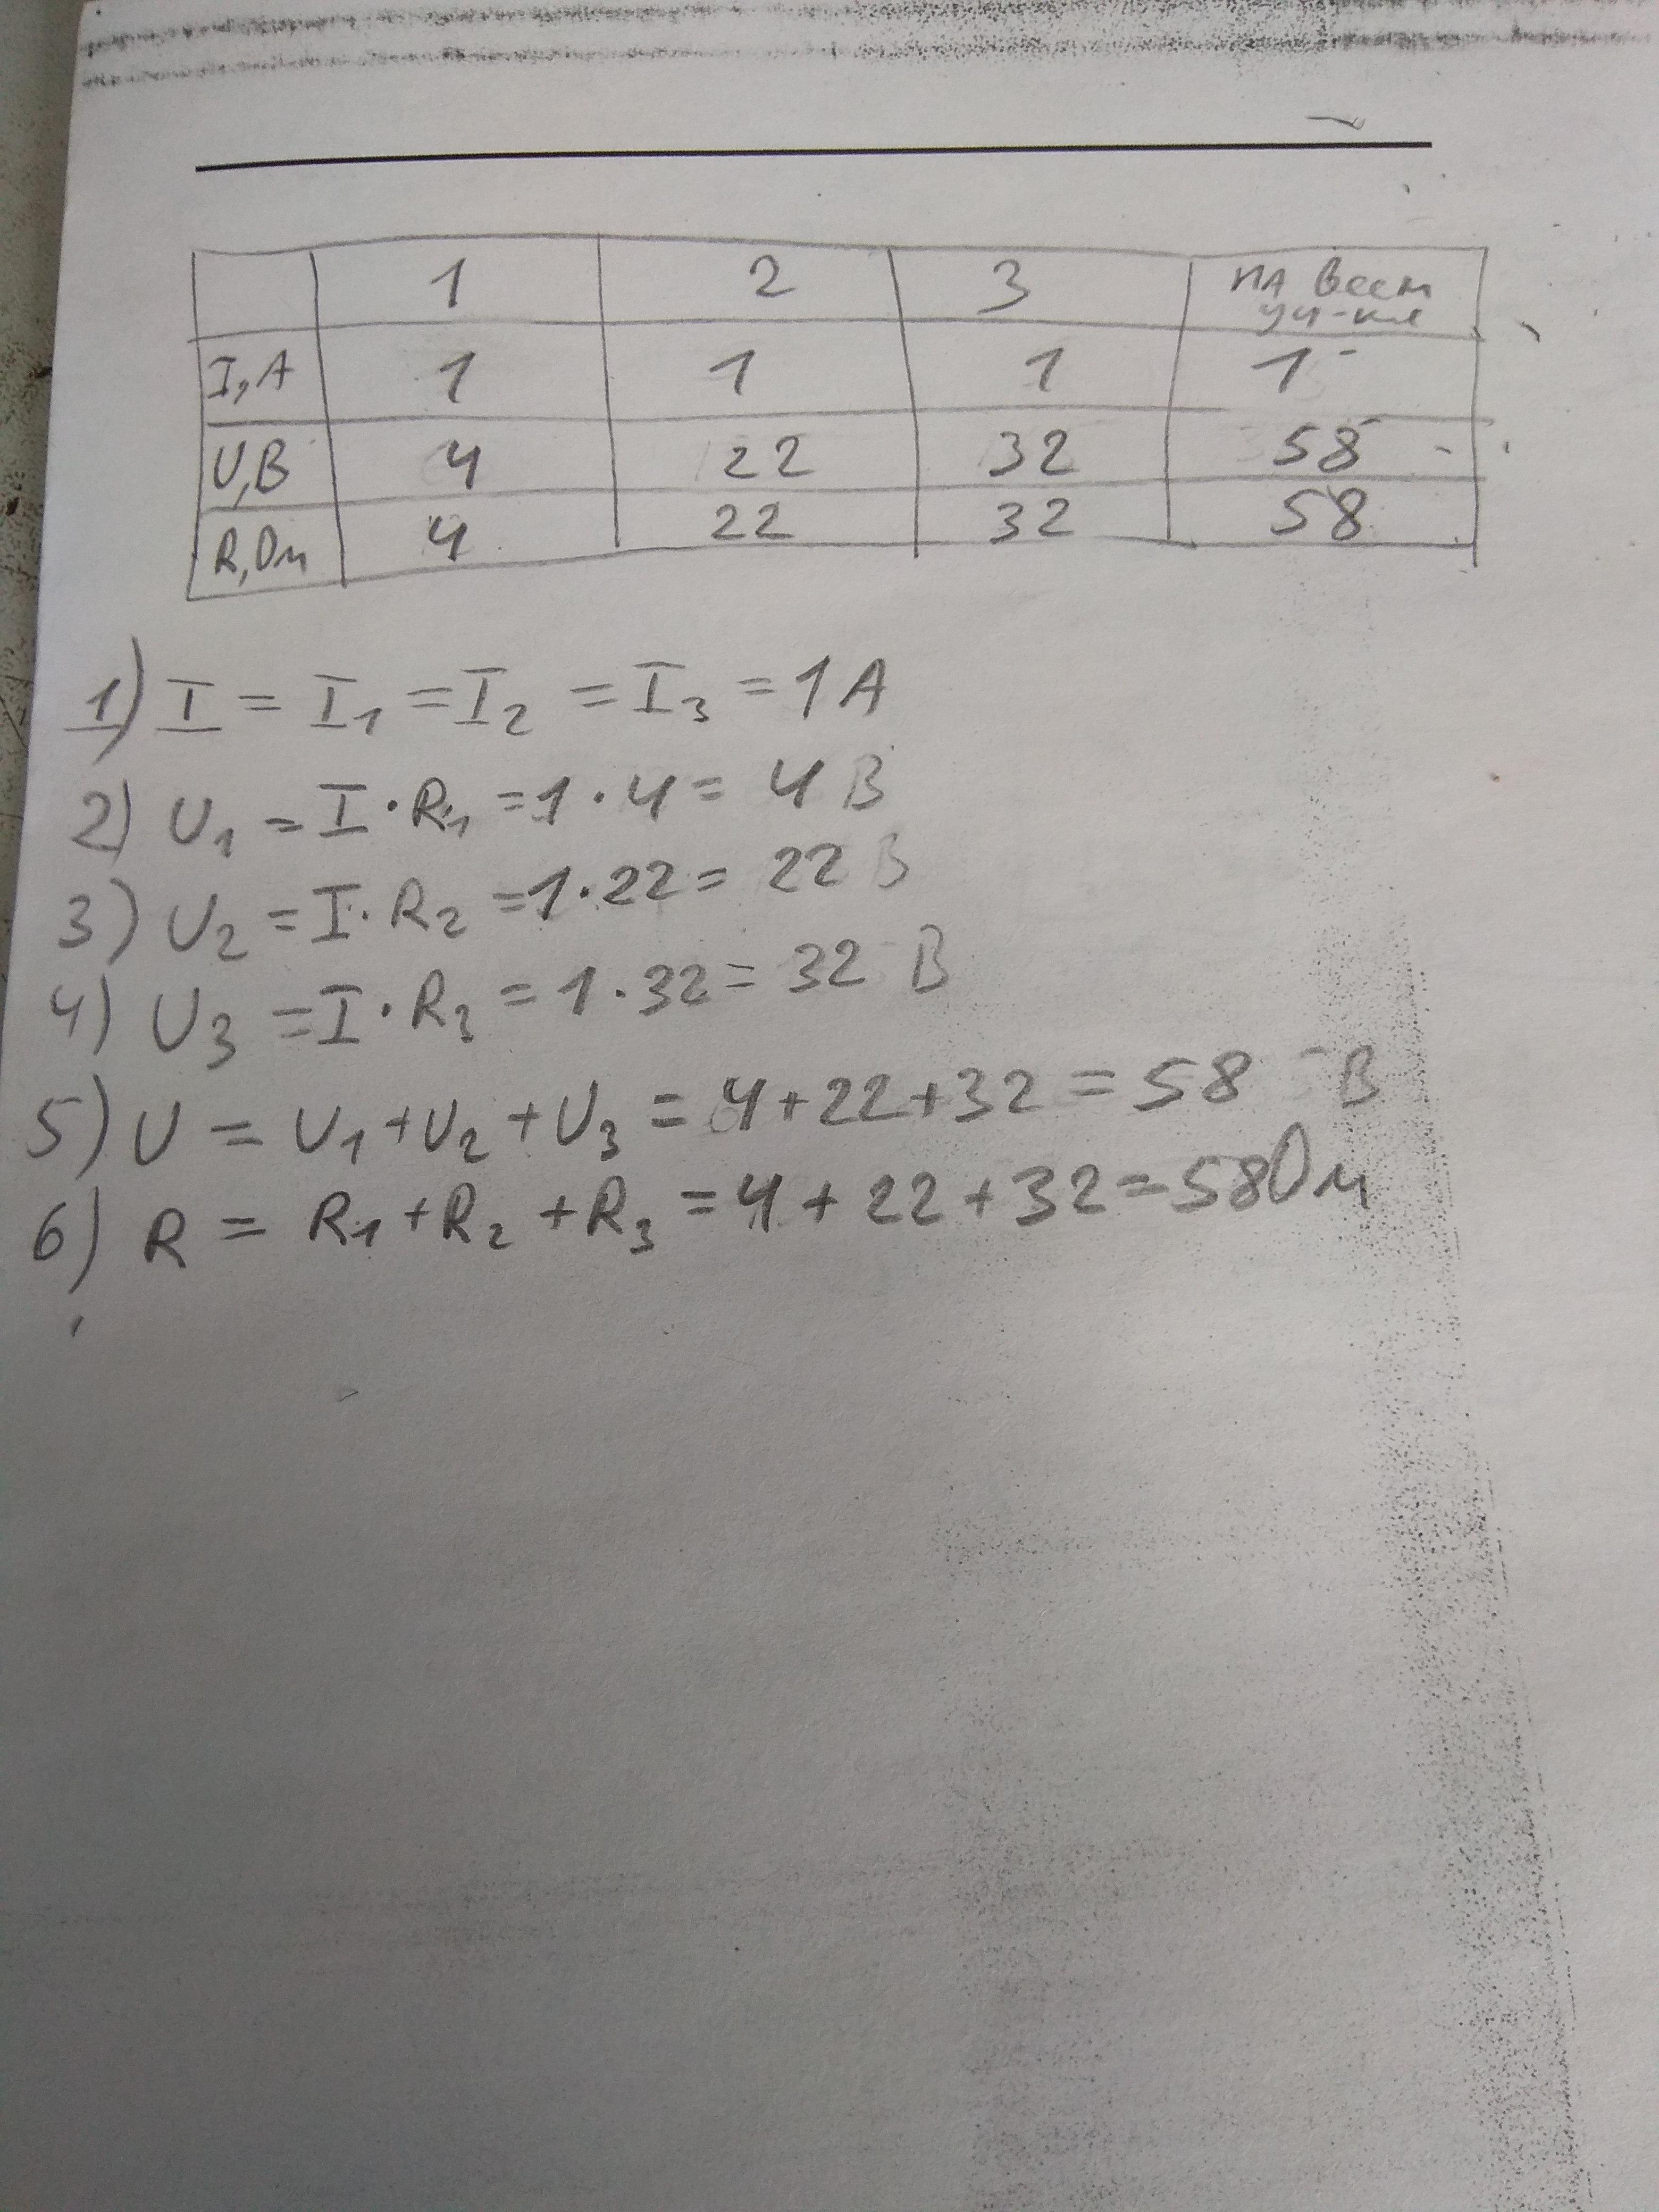 1 2 3 на всем
уч-ке
I, A 1 1 1 1
U, B 4 22 32 58
R, Ом 4 22 32 58
1) I = I₁ = I₂ = I₃ = 1 A
2) U₁ = I · R₁ = 1 · 4 = 4 B
3) U₂ = I · R₂ = 1 · 22 = 22 B
4) U₃ = I · R₃ = 1 · 32 = 32 B
5) U = U₁ + U₂ + U₃ = 4 + 22 + 32 = 58 B
6) R = R₁ + R₂ + R₃ = 4 + 22 + 32 = 58 Ом